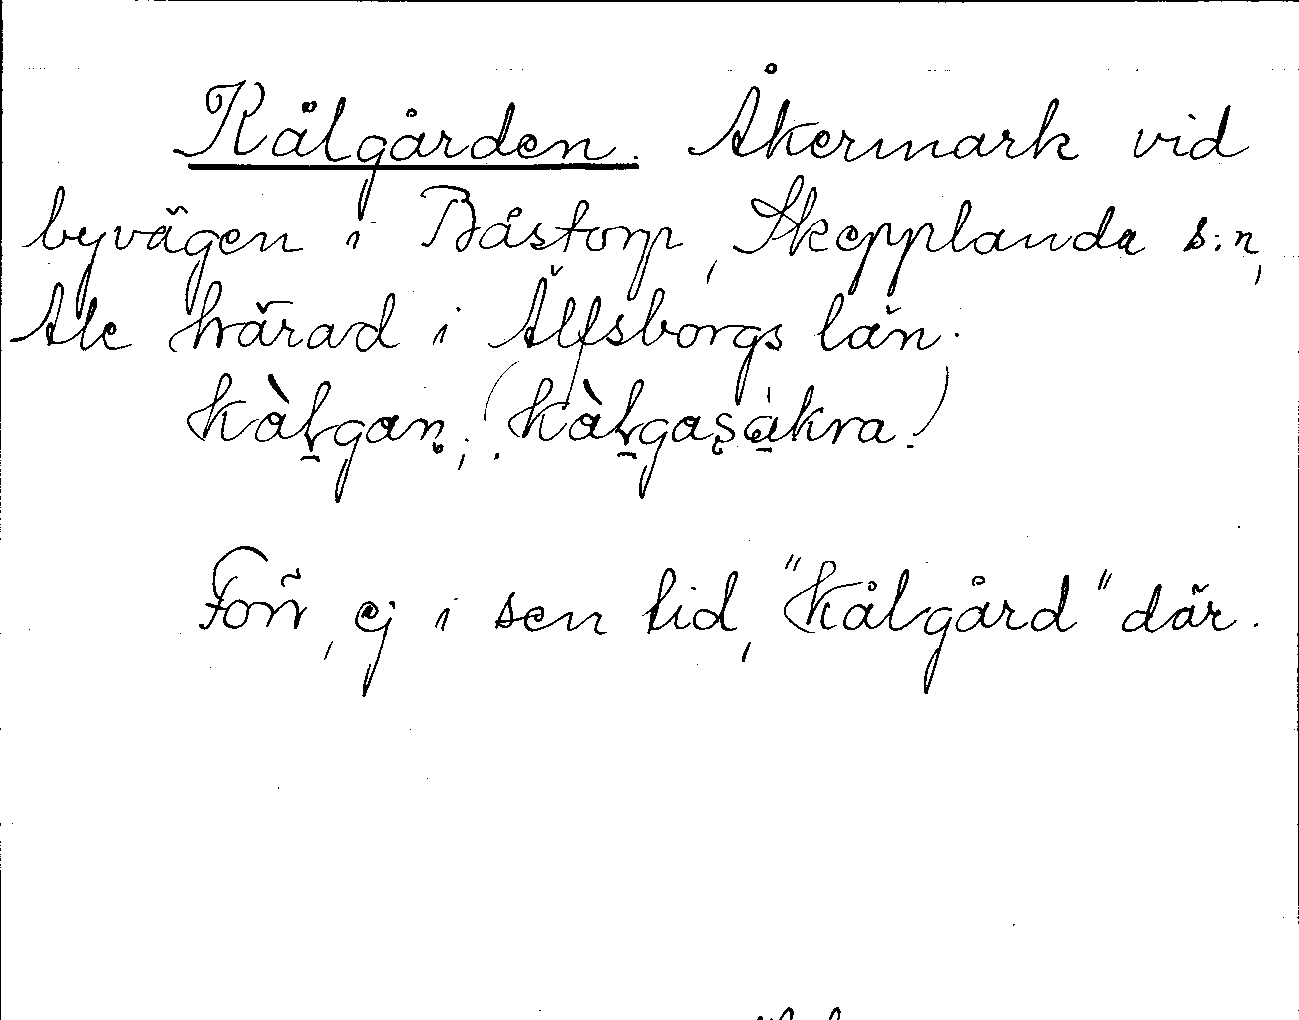 Kålgården. Åkermark vid
byvägen i Båstorp, Skepplanda s:n,
Ale härad i Älfsborgs län.
kàļgaņ; (kàļgaşàkra.)
Förr, ej i sen tid, "kålgård" där.